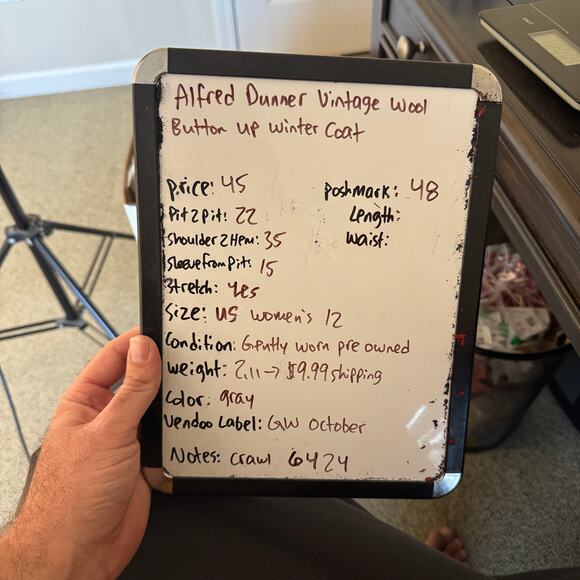 Alfred Dunner Vintage Wool
Button up winter Coat
price: 45 poshmark: 48
Pit2Pit: 22 Length:
Shoulder2Hem: 35 Waist:
SleevefromPit: 15
Stretch: Yes
Size: US Women's 12
Condition: Gently worn pre owned
Weight: 2.11 → $9.99 shipping
Color: gray
Vendoo Label: GW October
Notes: Crawl 6424